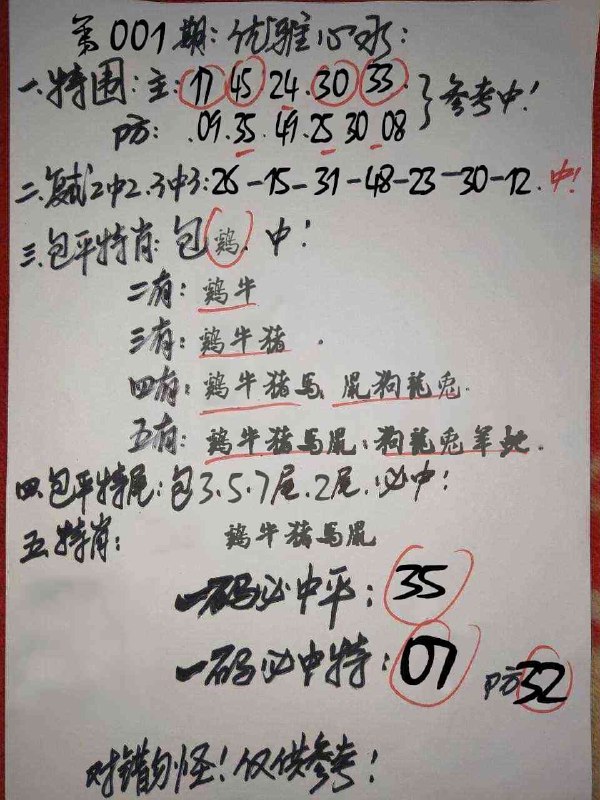 第001期:优雅心水:
一.特围:主:17 45 24.30 33.
防:.09.35.49.25 30 08 }参考中!
二.复式2中2.3中3:26-15-31-48-23-30-12.中!
三.包平特肖:包鷄.中!
二有:鷄牛
三有:鷄牛猪.
四有:鷄牛猪馬、鼠狗龍兔.
五有:鷄牛猪馬鼠:狗龍兔羊蛇.
四.包平特尾:包3.5.7尾.2尾.必中!
五.特肖:鷄牛猪馬鼠
一码必中平:35
一码必中特:07 防32
对错勿怪!仅供参考!